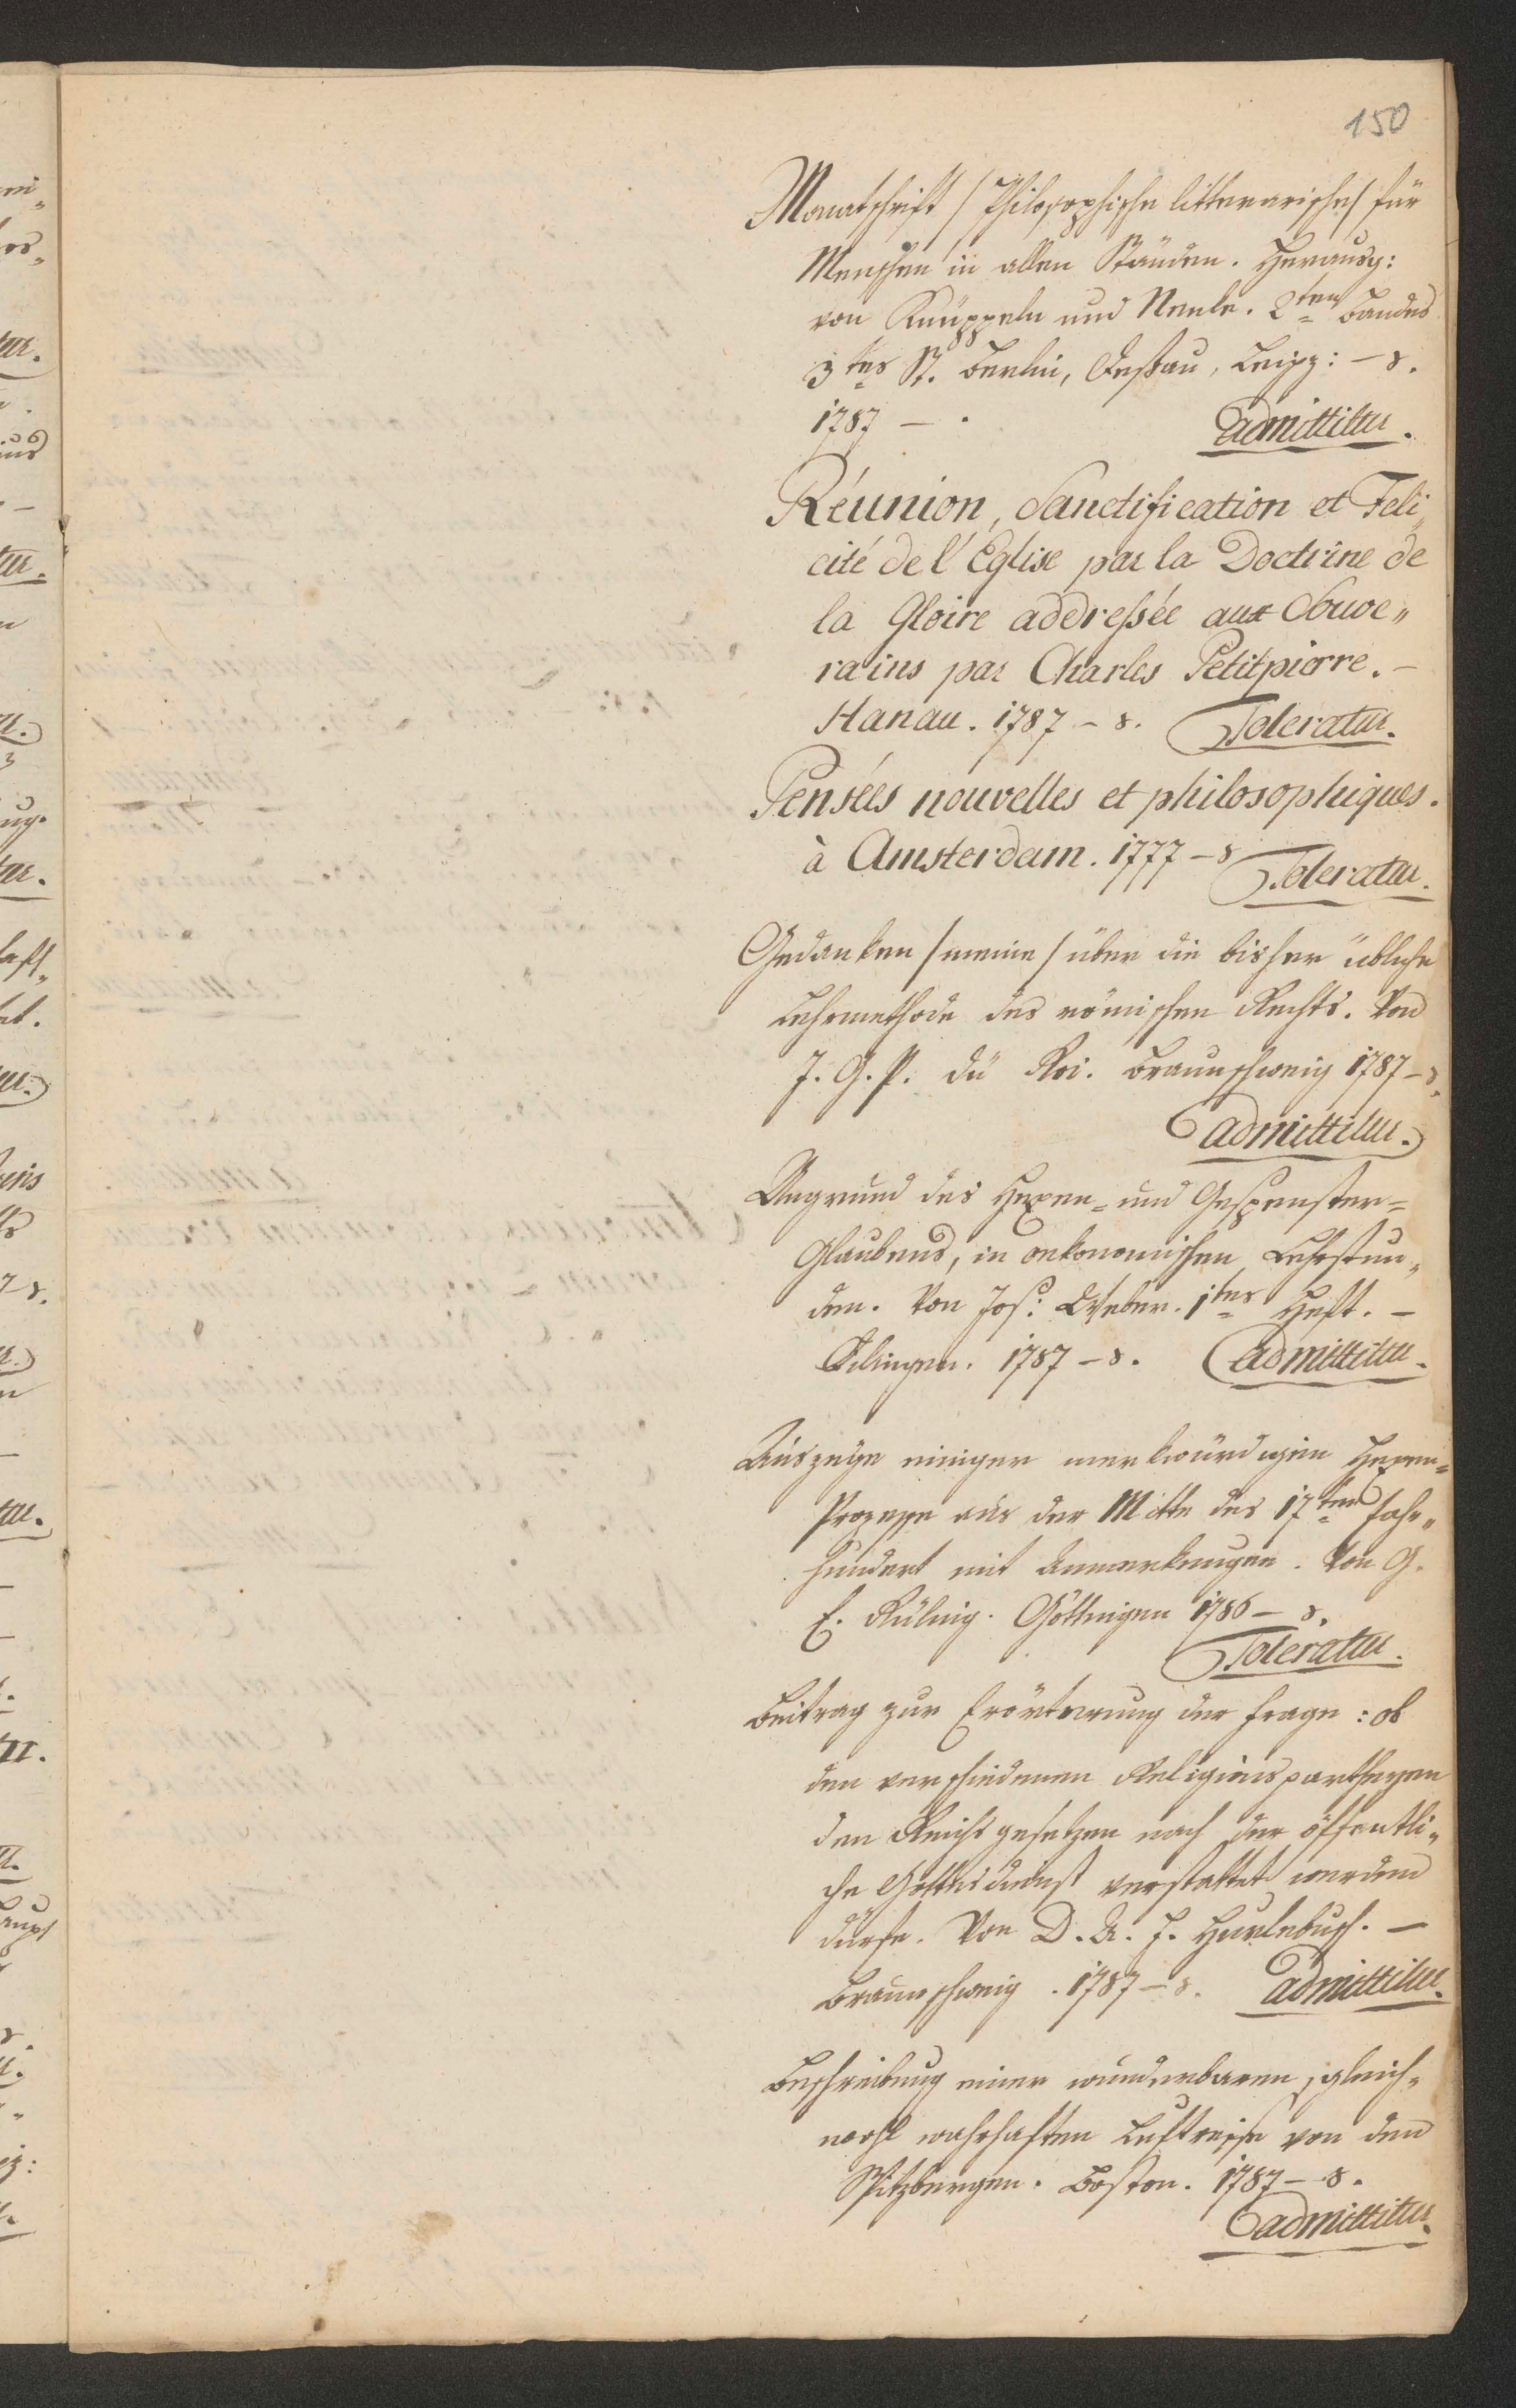 150
Monatschrift /Philosophische litterarische/ für
Menschen in allen Ständen. Herausg:
von Knüppeln und Nenke. 2ten Bandes
3tes St. Berlin, Deßau, Leipz: – 8.
1787 – .
admittitur.
Réunion, Sanctification et Feli„
cité de l'Église par la Doctrine de
la Gloire addreßée aux Souve„
rains par Charles Petitpierre. –
Hanau. 1787 – 8. Toleratur.
Pensées nouvelles et philosophiques.
à Amsterdam. 1777 – 8
Toleratur.
Gedanken /meine/ über die bisher übliche
Lehrmethode des römischen Rechts. Von
J. G. P. dü Roi. Braunschweig 1787 – 8.
admittitur.
Ungrund des Hexen= und Gespenster=
Glaubens, in oekonomischen Lehrstun„
den. Von Jos: Weber. 1tes Heft. –
Dilingen. 1787 – 8. admittitur.
Auszüge einiger merkwürdigen Hexen=
Prozesse aus der Mitte des 17ten Jahr„
hundert mit Anmerkungen. Von G.
E. Rüling. Göttingen 1786 – 8.
Toleratur.
Beitrag zur Erörterung der Frage: ob
den verschiedenen Religionspartheyen
den Reichsgesetzen nach der öffentli„
che Gottesdienst verstattet werden
dürfe. Von D. A. F. Hurlebusch. –
Braunschweig. 1787 – 8. admittitur.
Beschreibung einer wunderbaren, gleich„
wohl wahrhaften Luftreise von den
Spitzbergen. Boston. 1787 – 8.
admittitur.